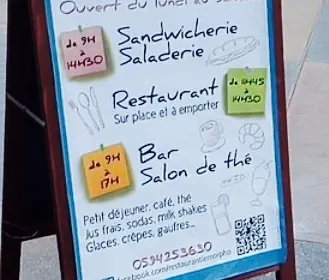 Ouvert du lundi au
Sandwicherie
Saladerie
de 9H
à
14H30
Restaurant
Sur place et à emporter
de 11H45
à
14H30
Bar
Salon de thé
de 9H
à
17H
Petit déjeuner, café, thé
Jus frais, sodas, milk shakes
Glaces, crêpes, gaufres...
0594253630
facebook.com/restaurantlemorpho